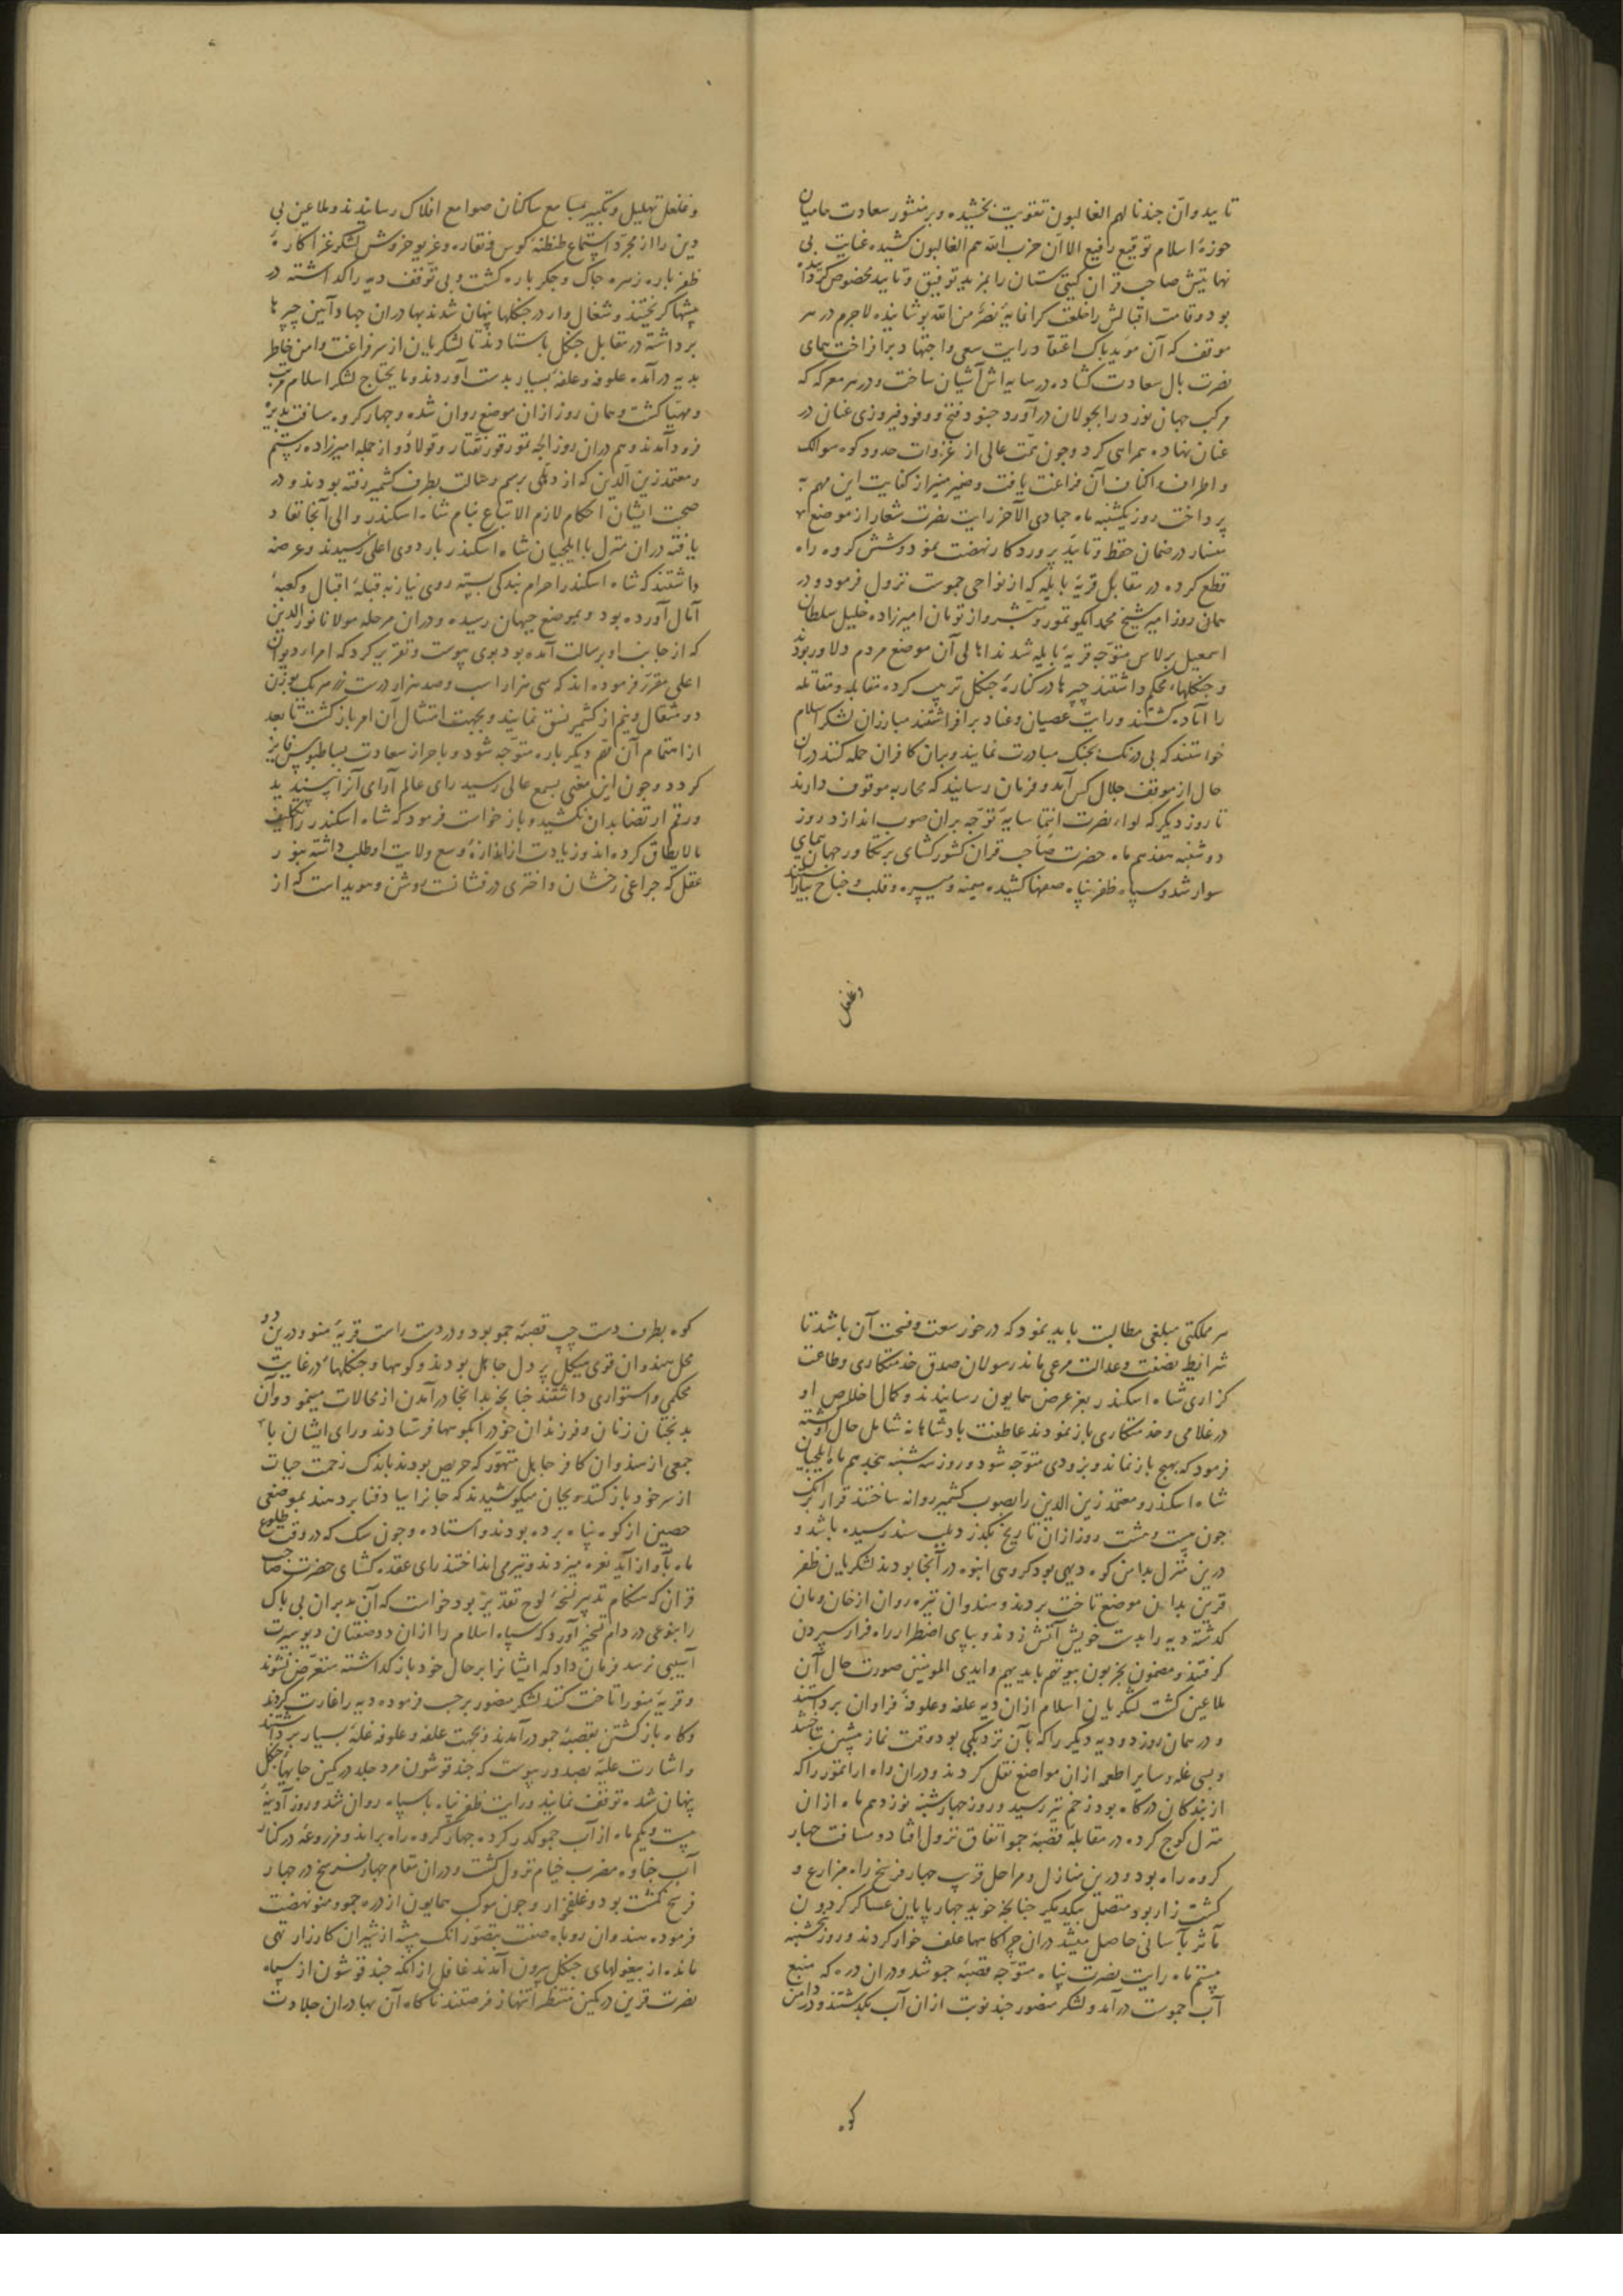 تایید و ان جندنا لهم الغالبون تقویت بخشیده و بر منشور سعادت حامیان
حوزهٔ اسلام توقیع رفیع الا ان حزب الله هم الغالبون کشیده غایت بی
نهایتش صاحب قران گیتی ستان را بمزید توفیق و تایید مخصوص کردانیده
بود و قامت اقبالش را خلعت کرانمایهٔ نصر من الله پوشانیده لاجرم در هر
موقف که آن موید پاک اعتقاد رایت سعی و اجتهاد برافراخت همای
نصرت بال سعادت کشاده در سایه اش آشیان ساخت و در هر معرکه که
مرکب جهان نورد را بجولان درآورد جنود فتح و وفود فیروزی عنان در
عنان نهاده همراهی کرد و چون همت عالی از غزوات حدود کوه سوالک
و اطراف و اکناف آن فراغت یافت و ضمیر منیر از کفایت این مهم بـ
پرداخت روز یکشنبه ماه جمادی الآخر رایت نصرت شعار از موضع
منسار در ضمان حفظ و تایید پروردکار نهضت نمود و شش کروه راه
قطع کرده در مقابل قریهٔ بایله که از نواحی جموست نزول فرمود و در
همان روز امیر شیخ محمد ایکو تمور و مبشر و از تومان امیرزاده خلیل سلطان
اسمعیل برلاس متوجه قریهٔ بایله شدند اهالی آن موضع مردم دلاور بودند
و جنکلهاء محکم داشتند چپرها در کنارهٔ جنکل ترتیب کرده مقابله و مقاتله
را آماده کشتند و رایت عصیان و عناد برافراشتند مبارزان لشکر اسلام
خواستند که بی درنک بجنک مبادرت نمایند و بران کافران حمله کنند دران
حال از موقف جلال کس آمد و فرمان رسانید که محاربه موقوف دارند
تا روز دیکر که لواء نصرت انتما سایهٔ توجه بران صوب اندازد روز
دوشنبه هفدهم ماه حضرت صاحب قران کشورکشای بر تکاور جهان پیمای
سوار شد و سپاه ظفر پناه صفها کشیده میمنه و میسره و قلب و جناح بیاراستند
و غلغل
و غلغل تهلیل و تکبیر بمسامع ساکنان صوامع افلاک رسانیدند و ملاعین بی
دین را از مجرد استماع طنطنهٔ کوس و نقاره و غریو خروش لشکر غزا کارهٔ
ظفر یاره زهره چاک و جکر پاره کشت و بی توقف دیه را کداشته در
بیشها کریختند و شغال وار در جنکلها پنهان شدند بهادران جهاد آیین چپرها
برداشته در مقابل جنکل باستادند تا لشکریان از سر فراغت و امن خاطر
بدیه درآمده علوفه و علفهٔ بسیار بدست آوردند و مایحتاج لشکر اسلام مرتب
و مهیا کشت و همان روز ازان موضع روان شده و چهار کروه مسافت بریده
فرود آمدند و هم دران روز الجه تمور قوزنقتار و فولاد و از جمله امیرزاده رستم
و معتمد زین الدین که از دهلی برسم رسالت بطرف کشمیر رفته بودند و در
صحبت ایشان احکام لازم الاتباع بنام شاه اسکندر والی آنجا نفاذ
یافته دران منزل با ایلچیان شاه اسکندر باردوی اعلی رسیدند و عرضه
داشتند که شاه اسکندر احرام بندکی بسته روی نیاز به قبلهٔ اقبال و کعبهٔ
آمال آورده بود و بموضع جبهان رسیده و دران مرحله مولانا نورالدین
که از جانب او برسالت آمده بود بوی پیوست و تقریر کرد که امراء دیوان
اعلی مقرر فرموده اند که سی هزار اسب و صد هزار درست زر هر یک بوزن
دو مثقال و نیم از کشمیر نسق نمایند و بجهت امتثال آن امر بازکشت تا بعد
از اتمام آن مهم دیکر باره متوجه شود و باحراز سعادت بساطبوس فایز
کردد و چون این معنی بسمع عالی رسید رای عالم آرای آنرا پسندید
و رقم ارتضا بدان نکشید و بازخواست فرمود که شاه اسکندر را تکلیف
مالایطاق کرده اند و زیادت از اندازهٔ وسع ولایت او طلب داشته بنور
عقل که چراغی رخشان و اختری درفشانست روشن و هویداست که از
هر مملکتی مبلغی مطالبت باید نمود که در خور سعت و فسحت آن باشد تا
شرایط نصفت و عدالت مرعی ماند رسولان صدق خدمتکاری و طاعت
کزاری شاه اسکندر بعز عرض همایون رسانیدند و کمال اخلاص او
در غلامی و خدمتکاری بازنمودند عاطفت پادشاهانه شامل حال او کشته
فرمود که بهیچ بازنماند و بزودی متوجه شود و روز سه شنبه هجدهم ماه ایلچیان
شاه اسکندر و معتمد زین الدین را بصوب کشمیر روانه ساختند قرار برانک
چون بیست و هشت روز ازان تاریخ بکذرد بلب سند رسیده باشد و
درین منزل بدامن کوه دیهی بود کروهی انبوه در آنجا بودند لشکریان ظفر
قرین بدان موضع تاخت بردند و هندوان تیره روان از خان و مان
کدشته دیه را بدست خویش آتش زدند و بپای اضطرار راه فرار سپردن
کرفتند و مضمون یخربون بیوتهم بایدیهم و ایدی المومنین صورت حال آن
ملاعین کشت لشکریان اسلام ازان دیه علفه و علوفهٔ فراوان برداشتند
و در همان روز دو دیه دیکر را که بآن نزدیکی بود وقت نماز پیشین تاختند
و بسی غله و سایر اطعمه ازان مواضع نقل کردند و دران راه اراتمور را که
از بندکان درکاه بود زخم تیر رسید و روز چهارشنبه نوزدهم ماه ازان
منزل کوچ کرده در مقابله قصبهٔ جمو اتفاق نزول افتاد و مسافت چهار
کروه راه بود و درین منازل و مراحل قرب چهار فرسخ راه مزارع و
کشت زار بود متصل بیکدیکر چنانچه خوید چهارپایان عساکر کردون
مآثر بآسانی حاصل میشد دران چراکاهها علف خوار کردند و روز پنجشنبه
بیستم ماه رایت نصرت پناه متوجه قصبهٔ جمو شد و دران دره که منبع
آب جموست درآمد و لشکر منصور چند نوبت ازان آب بکدشتند و در دامن
کوه
کوه بطرف دست چپ قصبهٔ جمو بود و در دست راست قریهٔ منو و درین دو
محل هندوان قوی هیکل پر دل جاهل بودند و کوهها و جنکلهاء در غایت
محکمی و استواری داشتند چنانچه بدانجا درآمدن از محالات مینمود و آن
بدبختان زنان و فرزندان خود را بکوهها فرستادند و رای ایشان با
جمعی از هندوان کافر جاهل متهور که حریص بودند باندک زحمت حیات
از سر خود باز کنند و بجان میکوشیدند که جانرا بباد فنا بردهند بموضعی
حصین از کوه پناه برده بودند و استاده و چون سک که در وقت طلوع
ماه بآواز آید نعره میزدند و تیر می انداختند رای عقده کشای حضرت صاحب
قران که هنکام تدبیر نسخهٔ لوح تقدیر بود خواست که آن مدبران بی باک
را بنوعی در دام تسخیر آورد که سپاه اسلام را ازان ددصفتان دیو سیرت
آسیبی نرسد فرمان داد که ایشانرا بر حال خود بازکداشته متعرض نشوند
و قریهٔ منو را تاخت کنند لشکر منصور برحسب فرموده دیه را غارت کردند
و کاه بازکشتن بقصبهٔ جمو درآمدند و بجهت علفه و علوفه غلهٔ بسیار برداشتند
و اشارت علیه بصدور پیوست که چند قوشون مرد جلد در کمین جایهاء جنکل
پنهان شده توقف نمایند و رایت ظفر پناه با سپاه روان شد و روز آدینهٔ
بیست و یکم ماه از آب جمو کدر کرده چهار کروه راه براند و مزروعهٔ در کنار
آب جناوه مضرب خیام نزول کشت و دران مقام چهار فرسخ در چهار
فرسخ کشت بود و علفزار و چون موکب همایون از دره جمو و منو نهضت
فرموده هندوان روباه صفت بتصور آنک بیشه از شیران کارزار تهی
مانده از بیغولهای جنکل بیرون آمدند غافل ازانکه چند قوشون از سپاه
نصرت قرین در کمین منتظر انتهاز فرصتند ناکاه آن بهادران جلادت